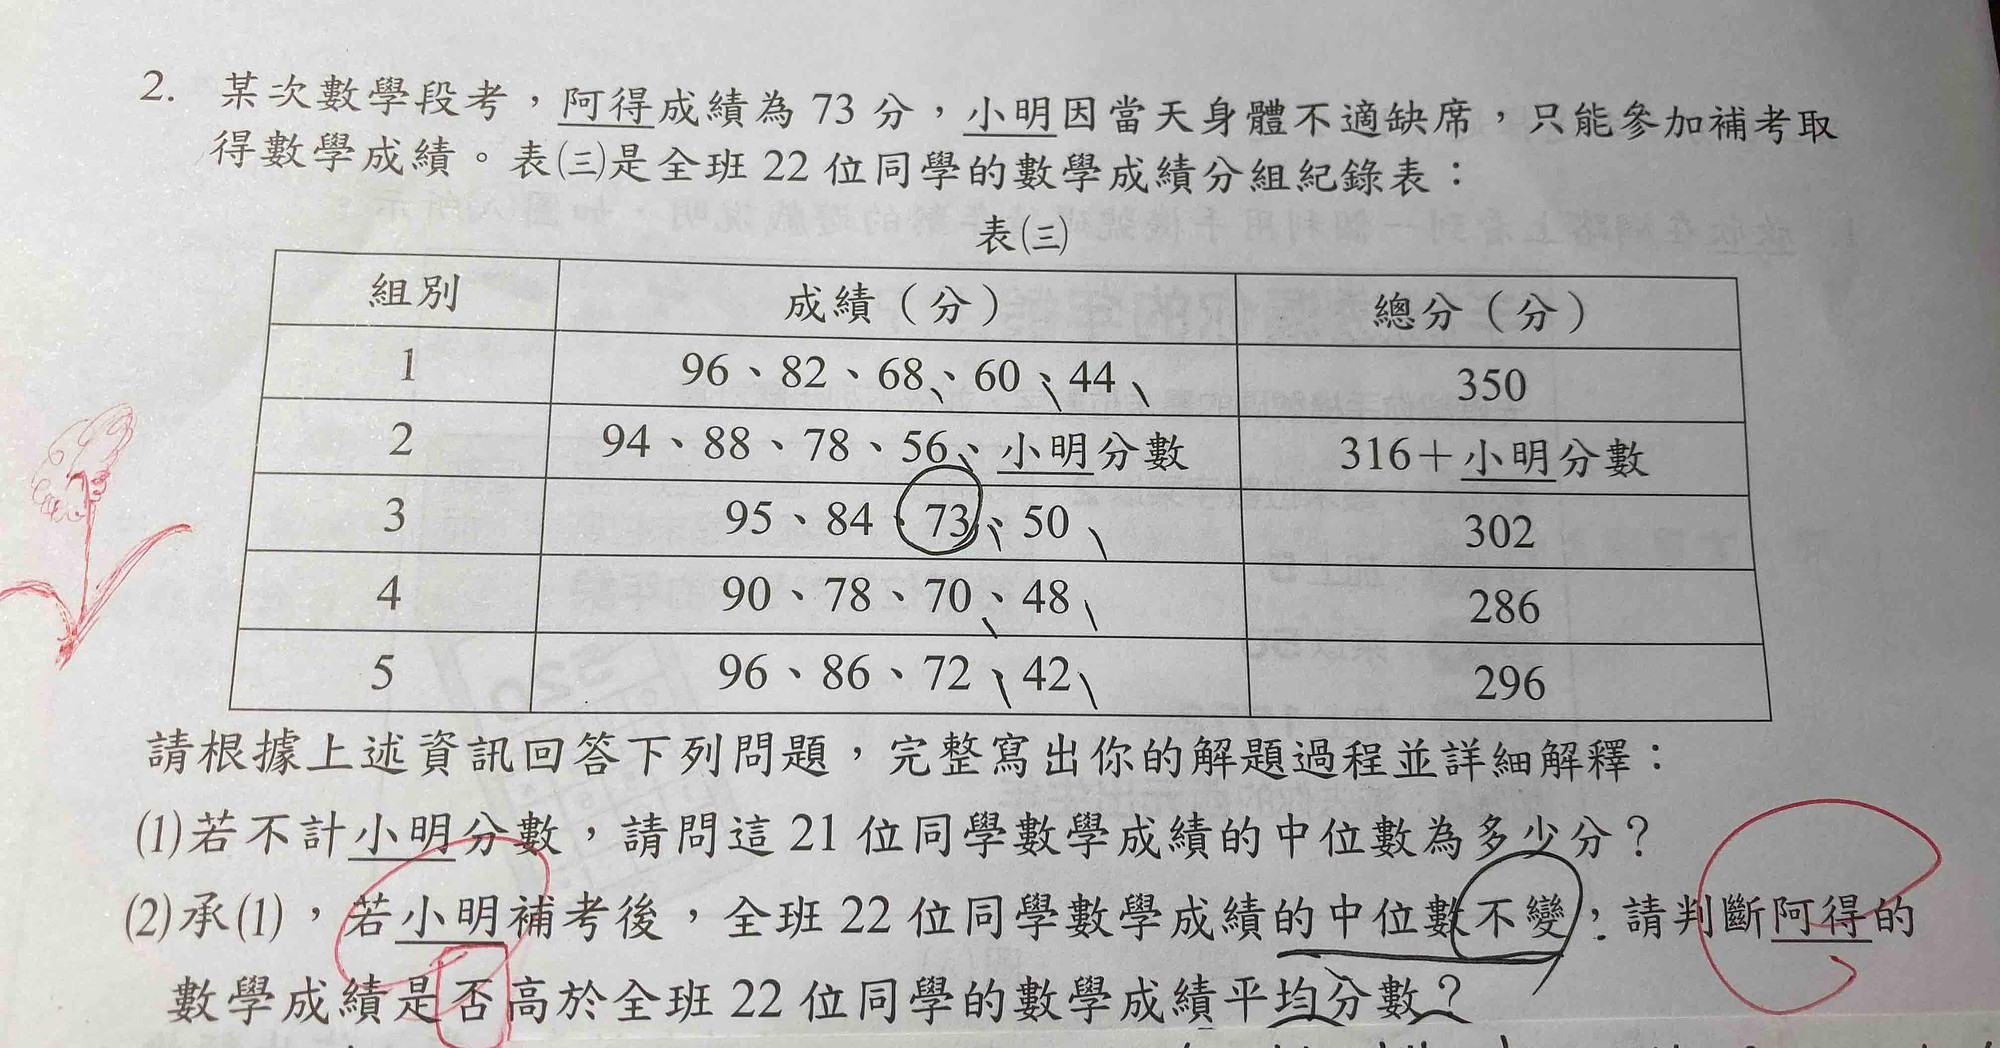 2. 某次數學段考，阿得成績為 73 分，小明因當天身體不適缺席，只能參加補考取
得數學成績。表㈢是全班 22 位同學的數學成績分組紀錄表：
表㈢
組別 成績（分） 總分（分）
1 96、82、68、60、44 350
2 94、88、78、56、小明分數 316＋小明分數
3 95、84、73、50 302
4 90、78、70、48 286
5 96、86、72、42 296
請根據上述資訊回答下列問題，完整寫出你的解題過程並詳細解釋：
⑴若不計小明分數，請問這 21 位同學數學成績的中位數為多少分？
⑵承⑴，若小明補考後，全班 22 位同學數學成績的中位數不變，請判斷阿得的
數學成績是否高於全班 22 位同學的數學成績平均分數？